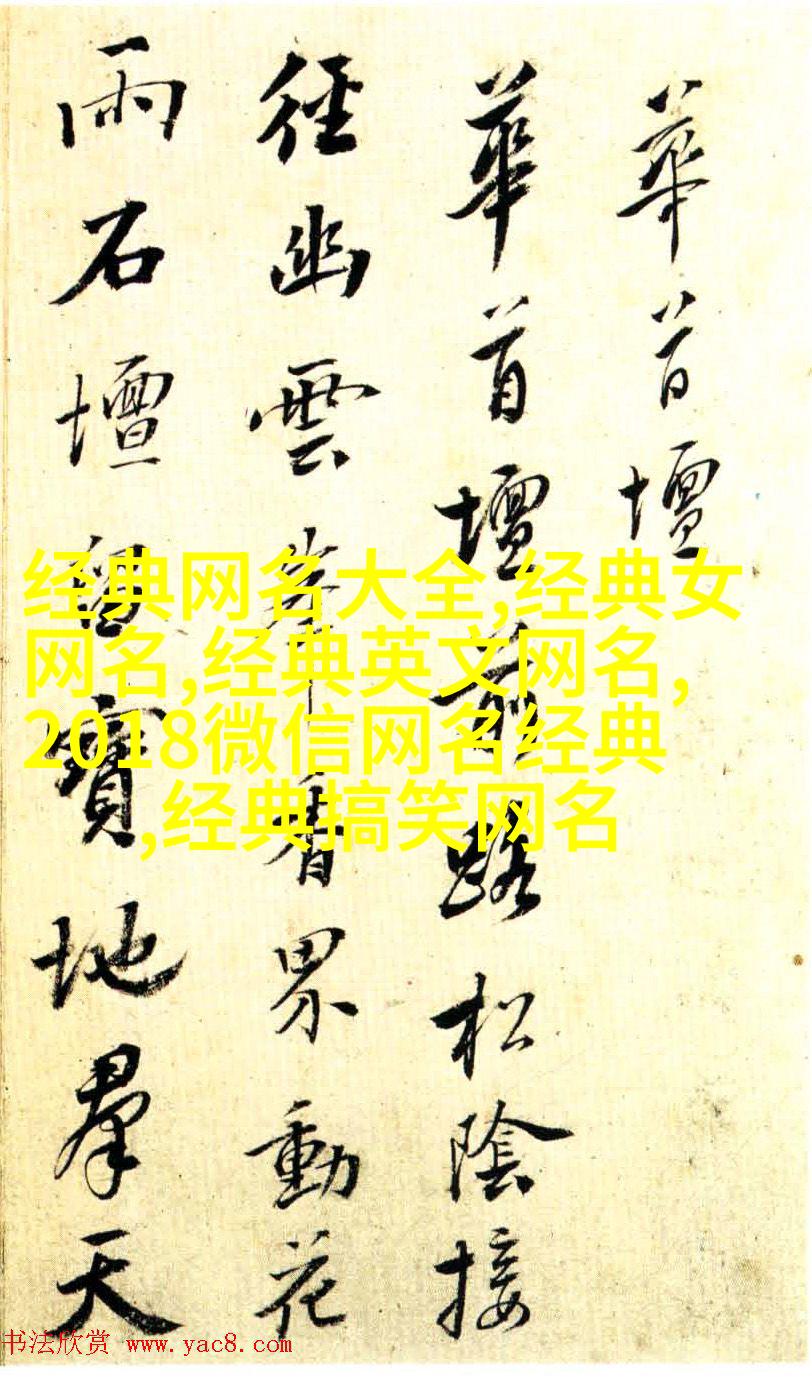 華首壇
華首壇前路松陰接
徑幽雲峯香界動花
雨石壇留寶地羣天
经典网名大全,经典女
网名,经典英文网名,
2018微信网名经典
,经典搞笑网名
书法欣赏 www.yac8.com